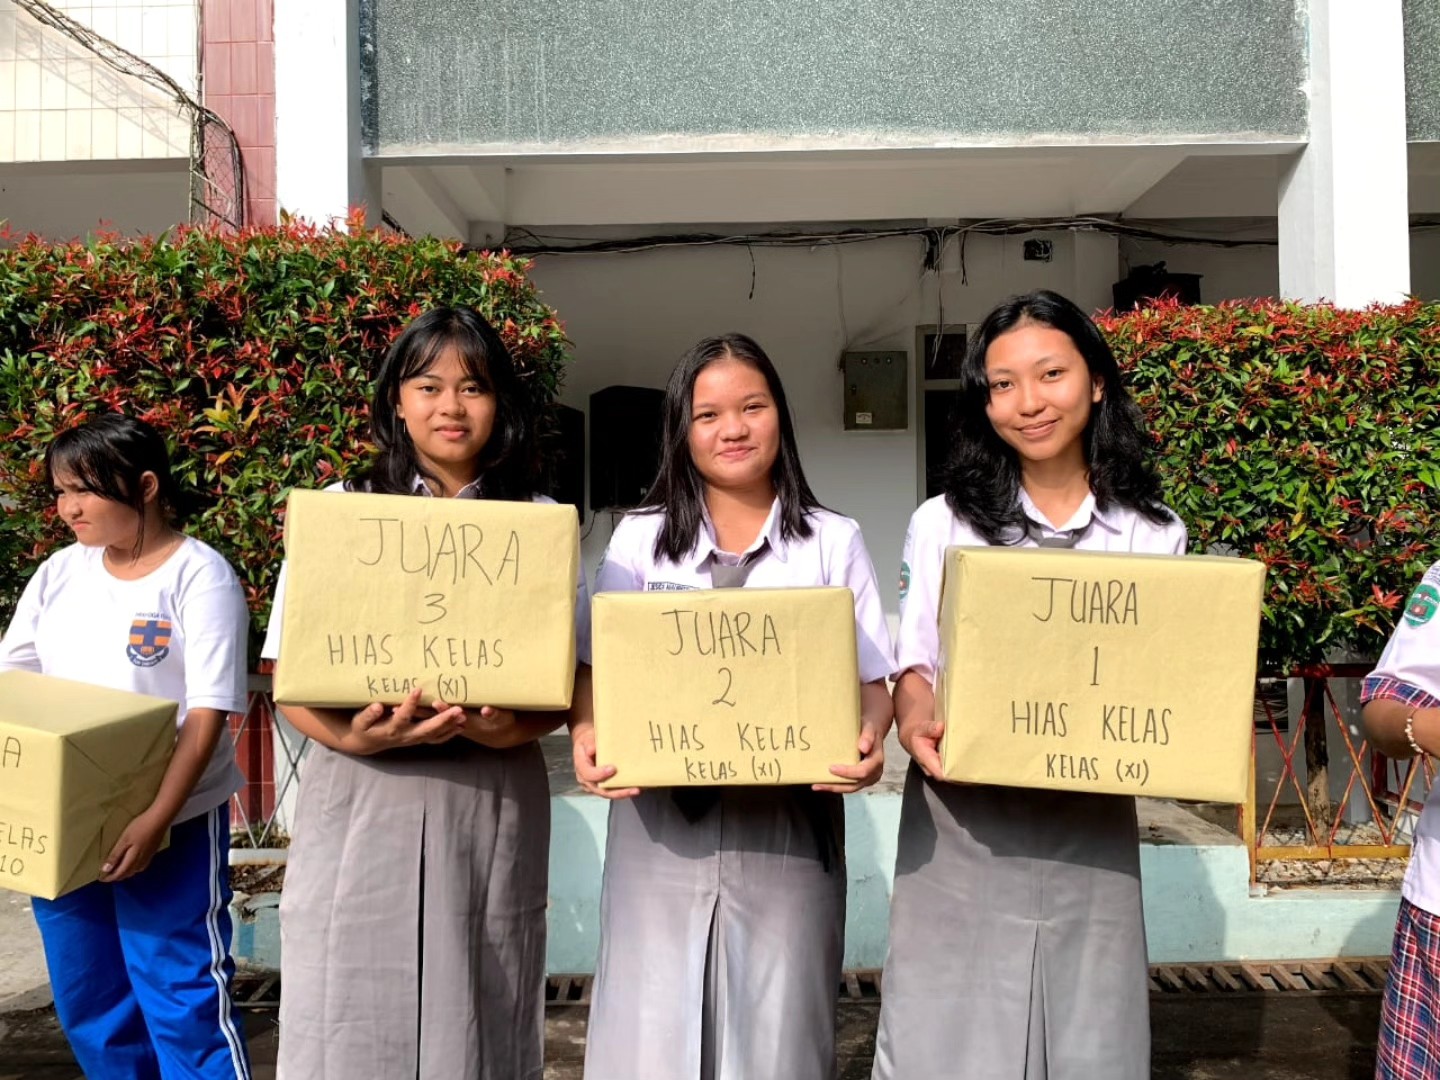 JUARA
3
HIAS KELAS
KELAS (XI)
JUARA
2
HIAS KELAS
KELAS (XI)
JUARA
1
HIAS KELAS
KELAS (XI)
RA
ELAS
10